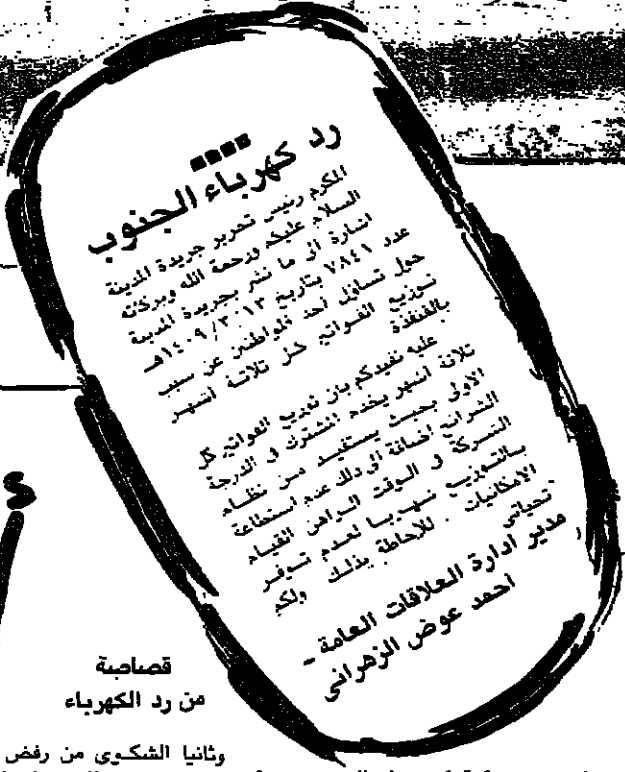 رد كهرباء الجنوب
المكرم رئيس تحرير جريدة المدينة
السلام عليكم ورحمة الله وبركاته
اشارة الى ما نشر بجريدة المدينة
عدد ٧٨٤١ بتاريخ ١٤٠٩/٣٠١٣هـ
حول تساؤل احد المواطنين عن سبب
توزيع الفواتير كل ثلاثة اشهر
بالقنفذة
عليه نفيدكم بان توزيع الفواتير كل
ثلاثة اشهر يخدم المشترك فى الدرجة
الاولى بحيث يستفيد من نظام
الشرائح اضافة الى ذلك عدم استطاعة
الشركة فى الوقت الراهن القيام
بالتوزيع شهريا لعدم توفر
الامكانيات . للاحاطة بذلك ولكم
تحياتى
مدير ادارة العلاقات العامة -
احمد عوض الزهرانى
قصاصة
من رد الكهرباء
وثانيا الشكوى من رفض